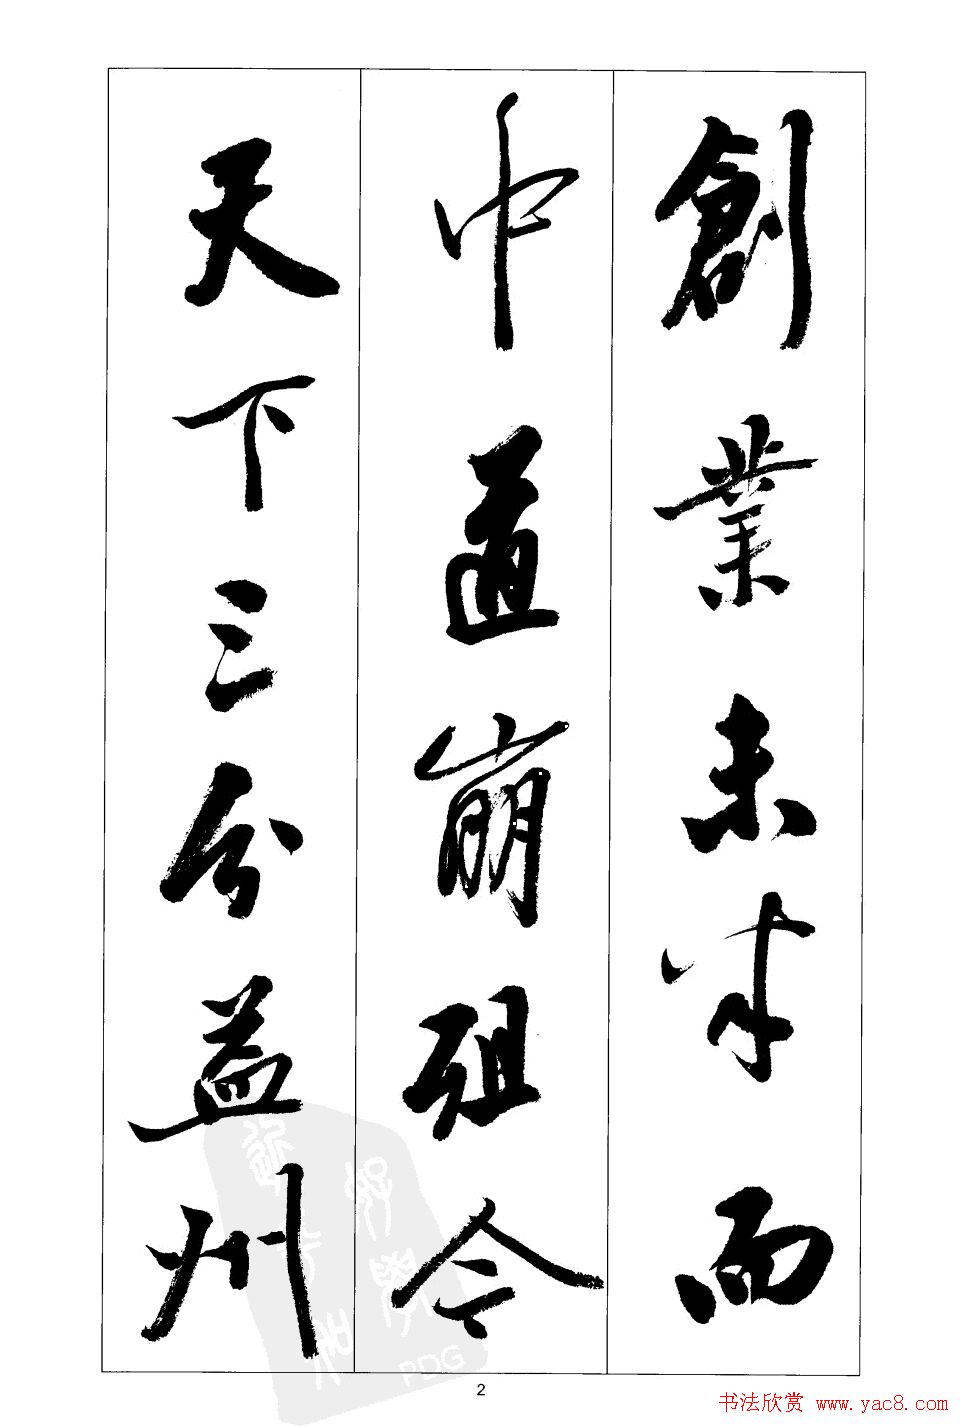 創業未半而
中道崩殂今
天下三分益州
PDG
2
书法欣赏 www.yac8.com